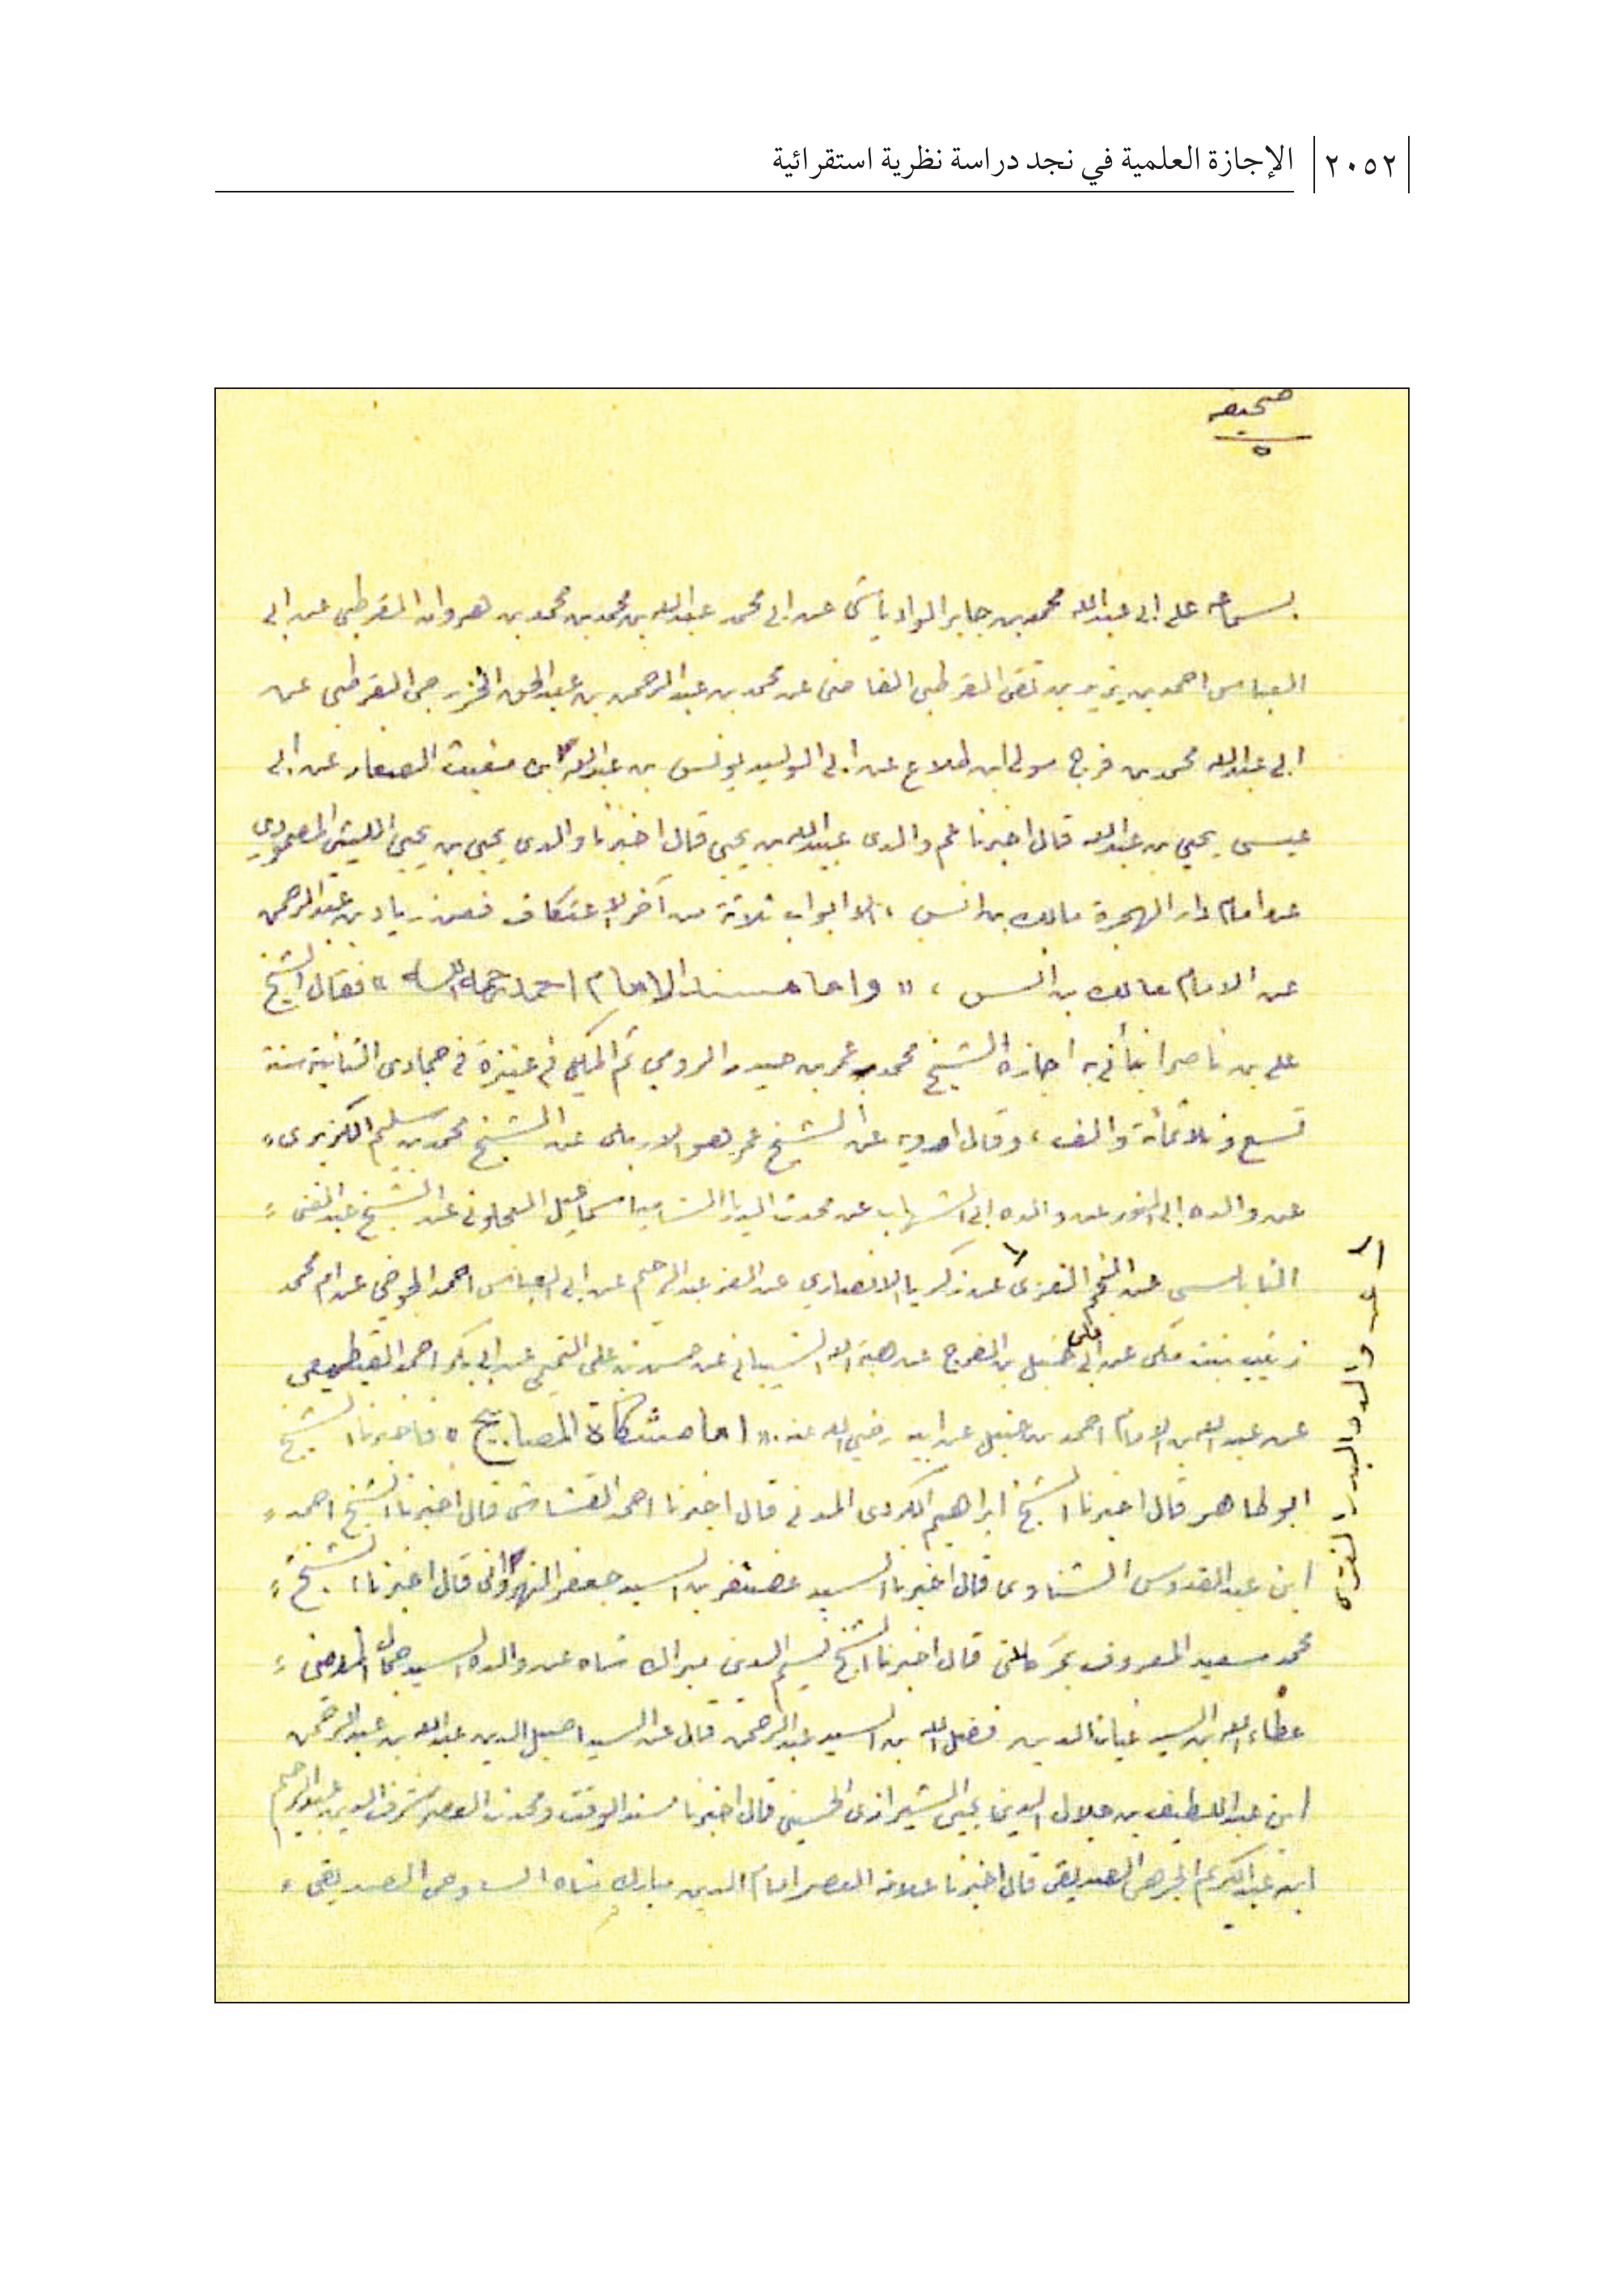 ٢٠٥٢ الإجازة العلمية في نجد دراسة نظرية استقرائية
صحيفه
٥
بسماعه على ابى عبدالله محمد بن جابر الوادياشى عن ابى محمد عبدالله بن محمد بن محمد بن هروان القرطبى عن ابى
العباس احمد بن يزيد بن تقى القرطبى القاضى عن محمد بن عبدالرحمن بن عبدالحق الخزرجى القرطبى عن
ابى عبدالله محمد بن فرج مولى ابن طلاع عن ابى الوليد يونس بن عبدالله ابن مغيث الصفار عن ابى
عيسى يحيى بن عبدالله قال اخبرنا عم والدى عبيدالله بن يحيى قال اخبرنا والدى يحيى بن يحيى الليثى المصمودي
عن امام دار الهجرة مالك بن انس ، الا ابواب ثلاثة من آخر الاعتكاف فعن زياد بن عبدالرحمن
عن الامام مالك بن انس ، « واما مسند الامام احمد رحمه الله » فقال الشيخ
على بن ناصر انبأنى به اجازة الشيخ محمد بن عمر بن حيدر الرومي ثم المكي في عنيزة في جمادى الثانية سنة
تسع وثلاثمأئة والف ، وقال ارويه عن الشيخ عمر هو الاربلى عن الشيخ محمد بن سليم الكزبرى
عن والده ابى النور عن والده ابى الشهاب عن محدث الديار الشامية اسماعيل العجلونى عن الشيخ عبدالغنى
النابلسى عن النجم الغزى عن زكريا الانصاري عن العز عبدالرحيم عن ابى العباس احمد الجوخي عن ام محمد
زينب بنت مكى عن ابى على حنبل بن الفرج عن هبة الله الشيبانى عن حسن بن على التميمى عن ابى بكر احمد القطيعى
عن عبدالله بن الامام احمد بن حنبل عن ابيه رضي الله عنه . « اما مشكاة المصابيح » فاخبرنا الشيخ
ابو طاهر قال اخبرنا الشيخ ابراهيم الكردى المدنى قال اخبرنا احمد القشاشى قال اخبرنا الشيخ احمد
ابن عبدالقدوس الشناوى قال اخبرنا السيد غضنفر بن السيد جعفر النهروانى قال اخبرنا الشيخ
محمد سعيد المعروف بمركلان قال اخبرنا الشيخ نسيم الدين ميراك شاه عن والده السيد جمال الدين
عطاء الله بن السيد غياث الدين فضل الله بن السيد عبدالرحمن قال عن السيد اصيل الدين عبدالله بن عبدالرحمن
ابن عبداللطيف بن جلال الدين يحيى الشيرازى الحسينى قال اخبرنا مسند الوقت ومحدث العصر شرف الدين عبدالرحيم
ابن عبدالكريم الجرهى الصديقى قال اخبرنا علامة العصر امام الدين مبارك شاه الساوجى الصديقى
عن والده البدر الغزى